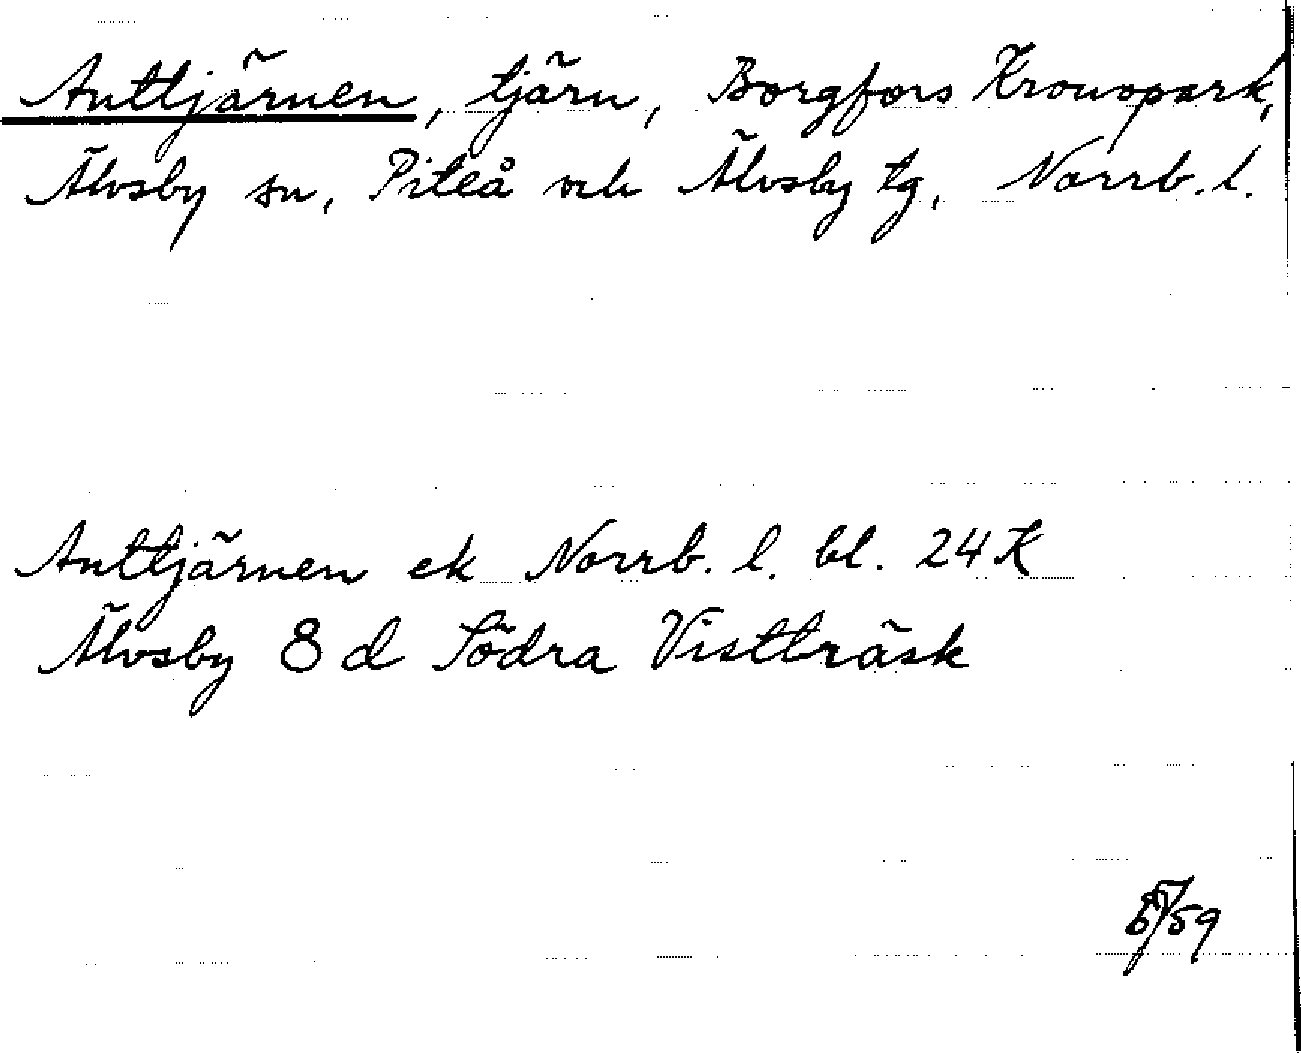 Anttjärnen, tjärn, Borgfors Kronopark,
Älvsby sn, Piteå och Älvsby tg, Norrb. l.
Anttjärnen ek Norrb. l. bl. 24 K
Älvsby 8 d Södra Vistträsk